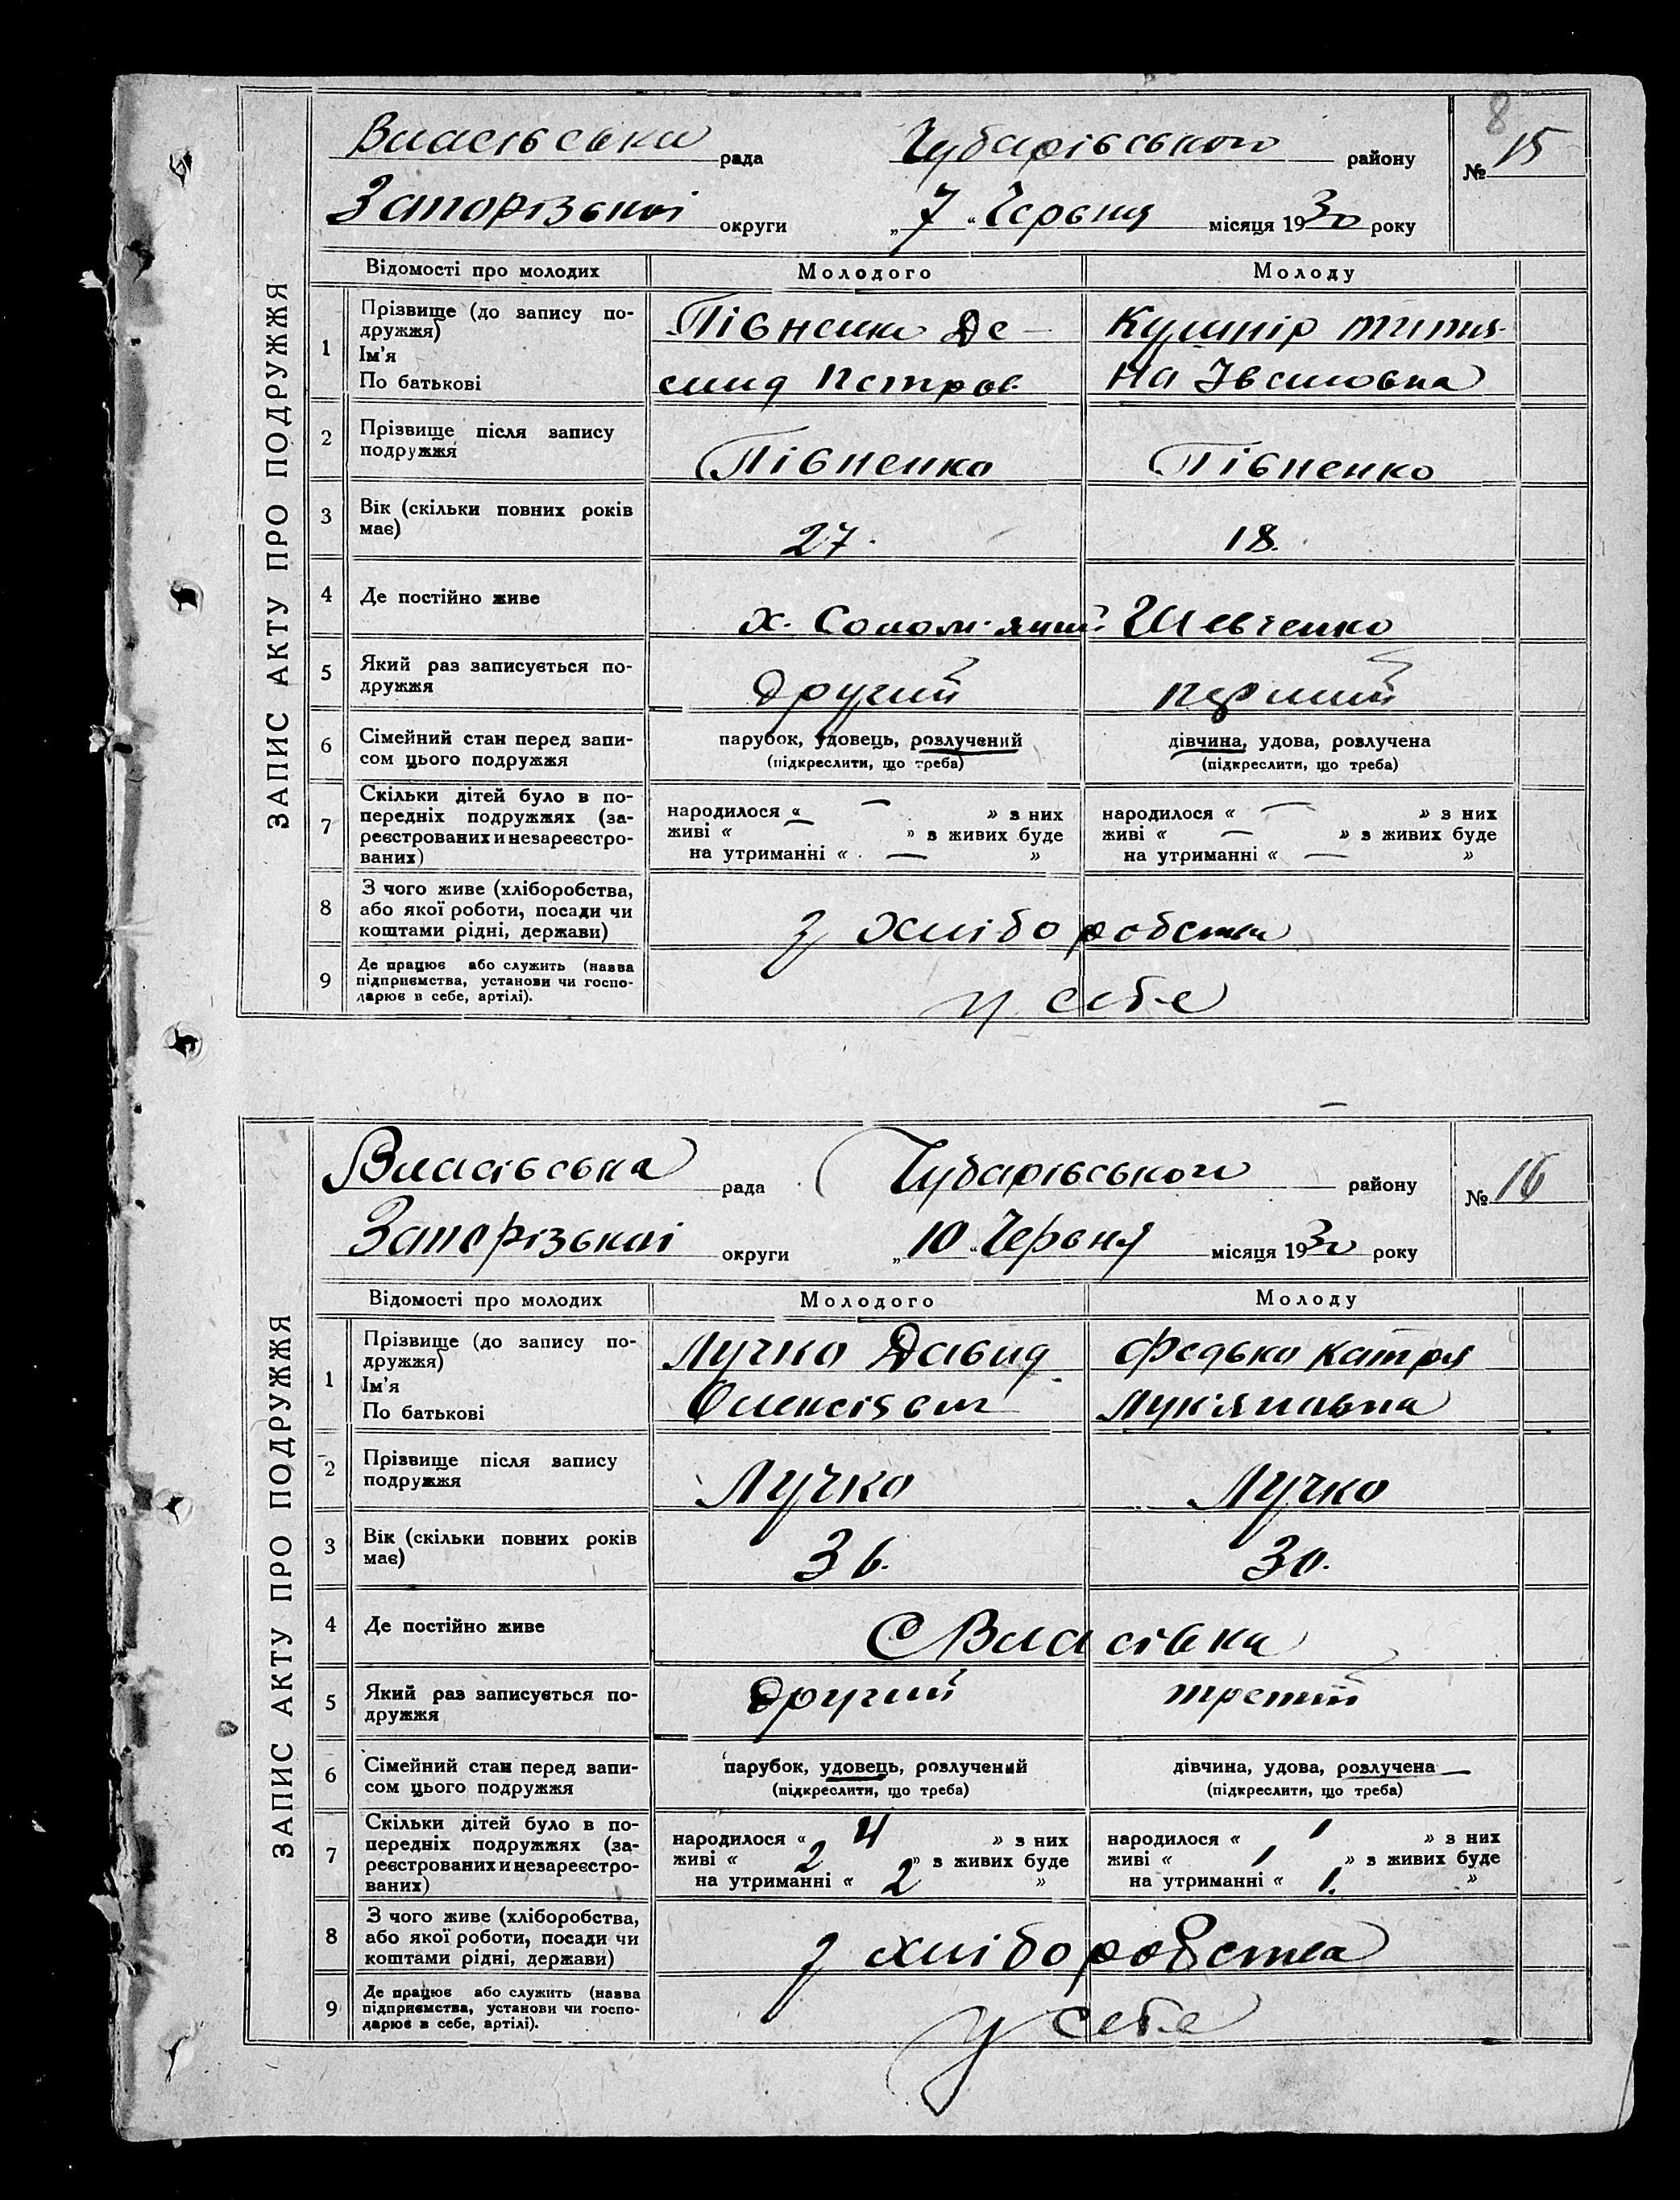 8
Власівська рада Чубарівського району № 15
Запорізької округи „7“ Червня місяця 1930 року
ЗАПИС АКТУ ПРО ПОДРУЖЖЯ
Відомості про молодих Молодого Молоду
1 Прізвище (до запису по-
дружжя)
Ім'я
По батькові
Півненко Де-
мид Петров.
Кушнір Титя-
на Івановна
2 Прізвище після запису
подружжя
Півненко Півненко
3 Вік (скільки повних років
має)
27. 18.
4 Де постійно живе
х. Солом'яний Шевченко
5 Який раз записується по-
дружжя
другий перший
6 Сімейний стан перед запи-
сом цього подружжя
парубок, удовець, розлучений дівчина, удова, розлучена
(підкреслити, що треба) (підкреслити, що треба)
7 Скільки дітей було в по-
передніх подружжях (за-
реєстрованих и незареєстро-
ваних)
народилося « — » з них народилося « — » з них
живі « — » з живих буде живі « — » з живих буде
на утриманні « — » на утриманні « — »
8 З чого живе (хліборобства,
або якої роботи, посади чи
коштами рідні, держави)
з хліборобства
9 Де працює або служить (назва
підприємства, установи чи госпо-
дарює в себе, артілі).
у себе
Власівська рада Чубарівського району № 16
Запорізької округи „10“ Червня місяця 1930 року
ЗАПИС АКТУ ПРО ПОДРУЖЖЯ
Відомості про молодих Молодого Молоду
1 Прізвище (до запису по-
дружжя)
Ім'я
По батькові
Лучко Давид
Федько Катря
Лук'яновна
2 Прізвище після запису
подружжя
Лучко Лучко
3 Вік (скільки повних років
має)
36. 30.
4 Де постійно живе
С Власівка
5 Який раз записується по-
дружжя
другий третий
6 Сімейний стан перед запи-
сом цього подружжя
парубок, удовець, розлучений дівчина, удова, розлучена
(підкреслити, що треба) (підкреслити, що треба)
7 Скільки дітей було в по-
передніх подружжях (за-
реєстрованих и незареєстро-
ваних)
народилося « 4 » з них народилося « 1 » з них
живі « 2 » з живих буде живі « 1 » з живих буде
на утриманні « 2 » на утриманні « 1. »
8 З чого живе (хліборобства,
або якої роботи, посади чи
коштами рідні, держави)
з хліборобства
9 Де працює або служить (назва
підприємства, установи чи госпо-
дарює в себе, артілі).
у себе